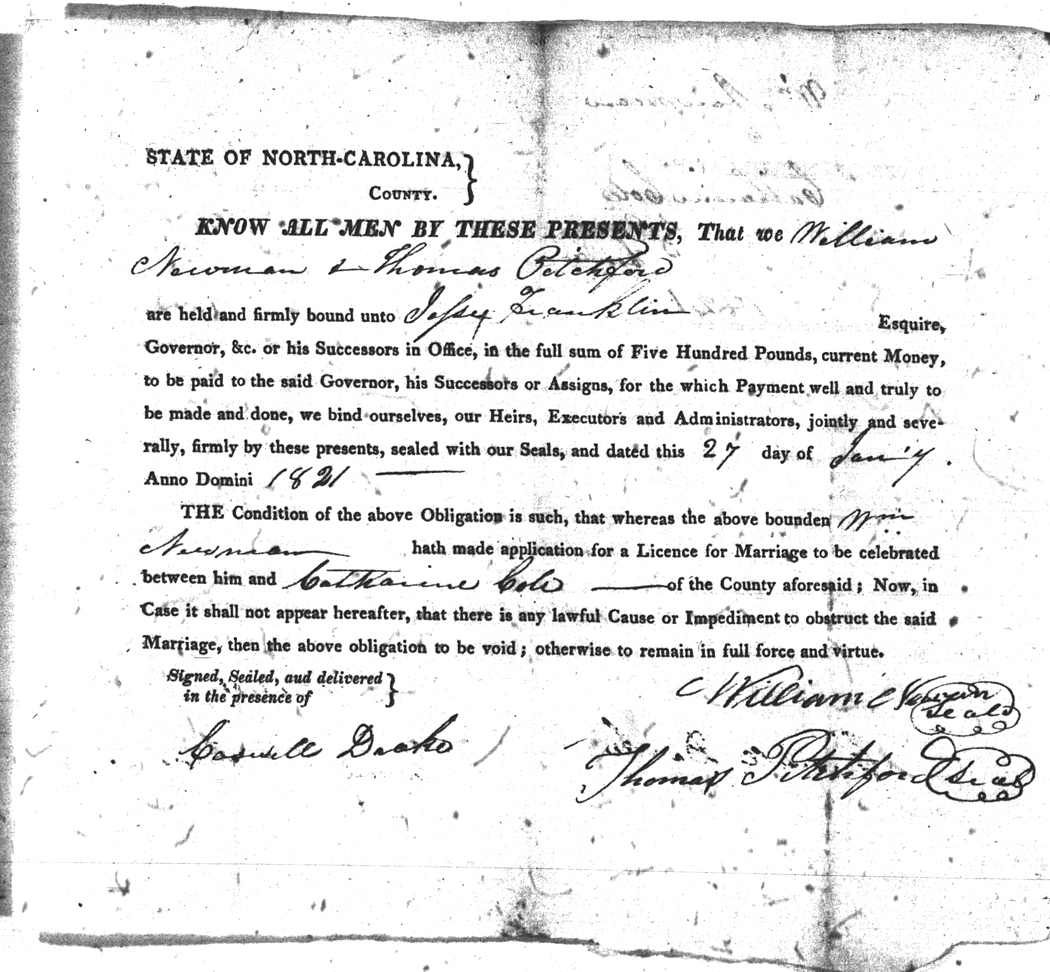 STATE OF NORTH-CAROLINA, }
COUNTY.
KNOW ALL MEN BY THESE PRESENTS, That we William
Newman & Thomas Pitchford
are held and firmly bound unto Jesse Franklin Esquire,
Governor, &c. or his Successors in Office, in the full sum of Five Hundred Pounds, current Money,
to be paid to the said Governor, his Successors or Assigns, for the which Payment well and truly to
be made and done, we bind ourselves, our Heirs, Executors and Administrators, jointly and seve-
rally, firmly by these presents, sealed with our Seals, and dated this 27 day of Jan'y.
Anno Domini 1821
THE Condition of the above Obligation is such, that whereas the above bounden Wm
Newman hath made application for a Licence for Marriage to be celebrated
between him and Catharine Cole of the County aforesaid; Now, in
Case it shall not appear hereafter, that there is any lawful Cause or Impediment to obstruct the said
Marriage, then the above obligation to be void; otherwise to remain in full force and virtue.
Signed, Sealed, and delivered }
in the presence of
William Newman
Seal
Caswell Drake
Thomas Pitchford Seal